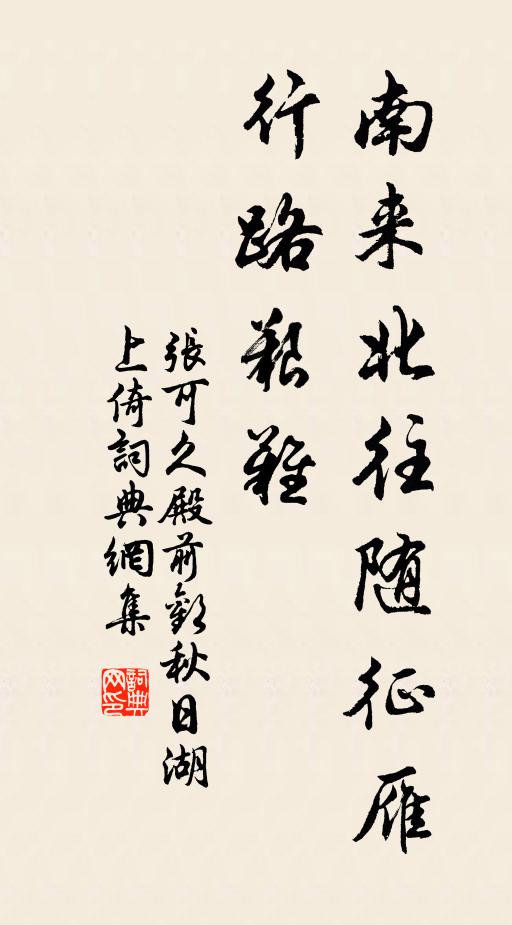 南来北往随征雁
行路艱難
張可久殿前歡秋日湖
上倚詞典網集
詞典
网印